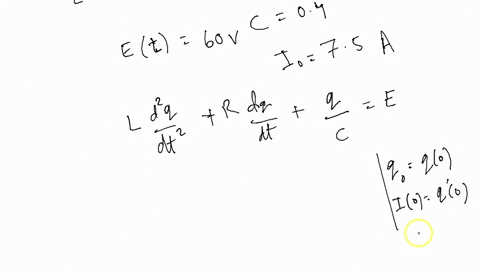 E(t) = 60V C = 0.4
I₀ = 7.5 A
L d²q/dt² + R dq/dt + q/C = E
q₀ = q(0)
I(0) = q'(0)